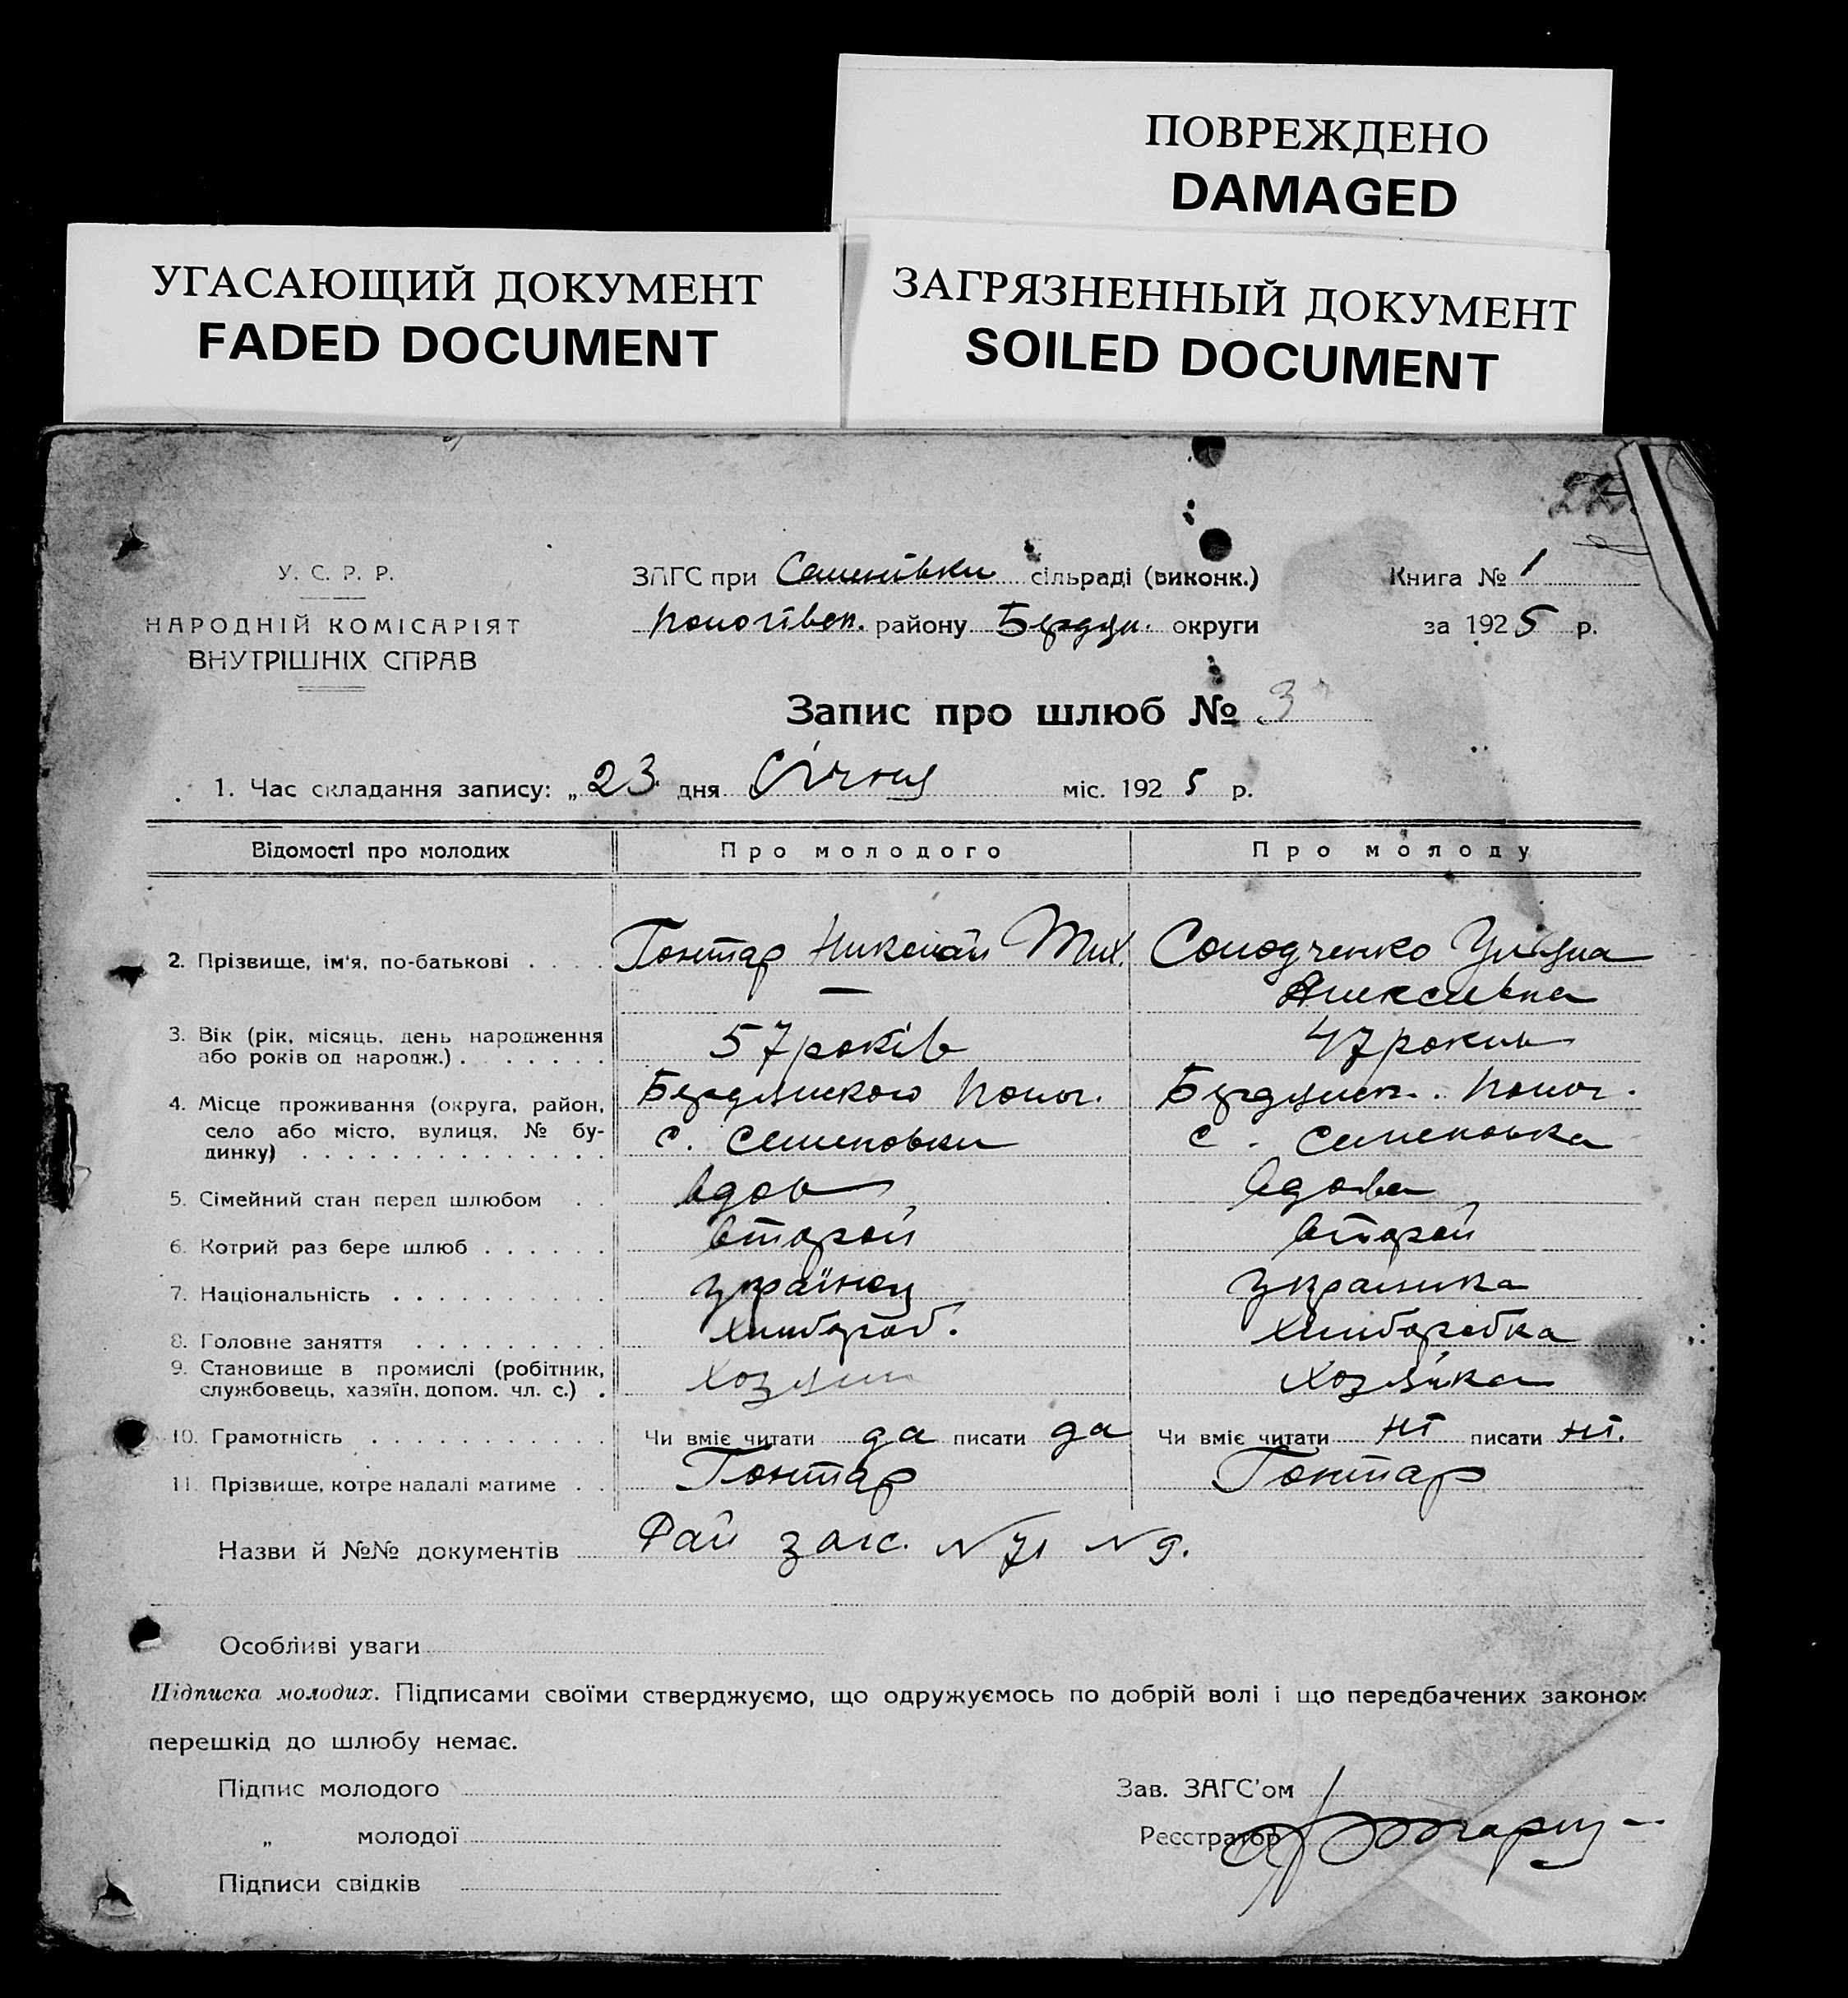 ПОВРЕЖДЕНО
DAMAGED
УГАСАЮЩИЙ ДОКУМЕНТ
FADED DOCUMENT
ЗАГРЯЗНЕННЫЙ ДОКУМЕНТ
SOILED DOCUMENT
У. С. Р. Р.
НАРОДНІЙ КОМІСАРІЯТ
ВНУТРІШНІХ СПРАВ
ЗАГС при Семенівки сільраді (виконк.)
Пологівск. району Бердян. округи
Книга № 1
за 1925 р.
Запис про шлюб № 3
1. Час складання запису: „ 23 дня Січня міс. 1925 р.
Відомості про молодих Про молодого Про молоду
2. Прізвище, ім'я, по-батькові . . . . Гонтар Николай Мих. Солодченко Улияна
— Алексиевна
3. Вік (рік, місяць, день народження
або років од народж.) . . . . . . 57 років 47 роков
4. Місце проживання (округа, район, Бердянского Полог. Бердянск. Полог.
село або місто, вулиця, № бу- с. Семеновки с. Семеновка
динку) . . . . . . . . . . . . . .
5. Сімейний стан перед шлюбом . . вдов вдова
6. Котрий раз бере шлюб . . . . . . второй второй
7. Національність . . . . . . . . . . українец украинка
8. Головне заняття . . . . . . . . . хлибороб. хлиборобка
9. Становище в промислі (робітник,
службовець, хазяїн, допом. чл. с.) . хозяин хозяйка
10. Грамотність . . . . . . . . . . . Чи вміє читати да писати да Чи вміє читати ні писати ні.
11. Прізвище, котре надалі матиме . . Гонтар Гонтар
Назви й №№ документів загс. N 71 N 9.
Особливі уваги
Підписка молодих. Підписами своїми стверджуємо, що одружуємось по добрій волі і що передбачених законом
перешкід до шлюбу немає.
Підпис молодого
„ молодої
Підписи свідків
Зав. ЗАГС'ом
Реєстратор